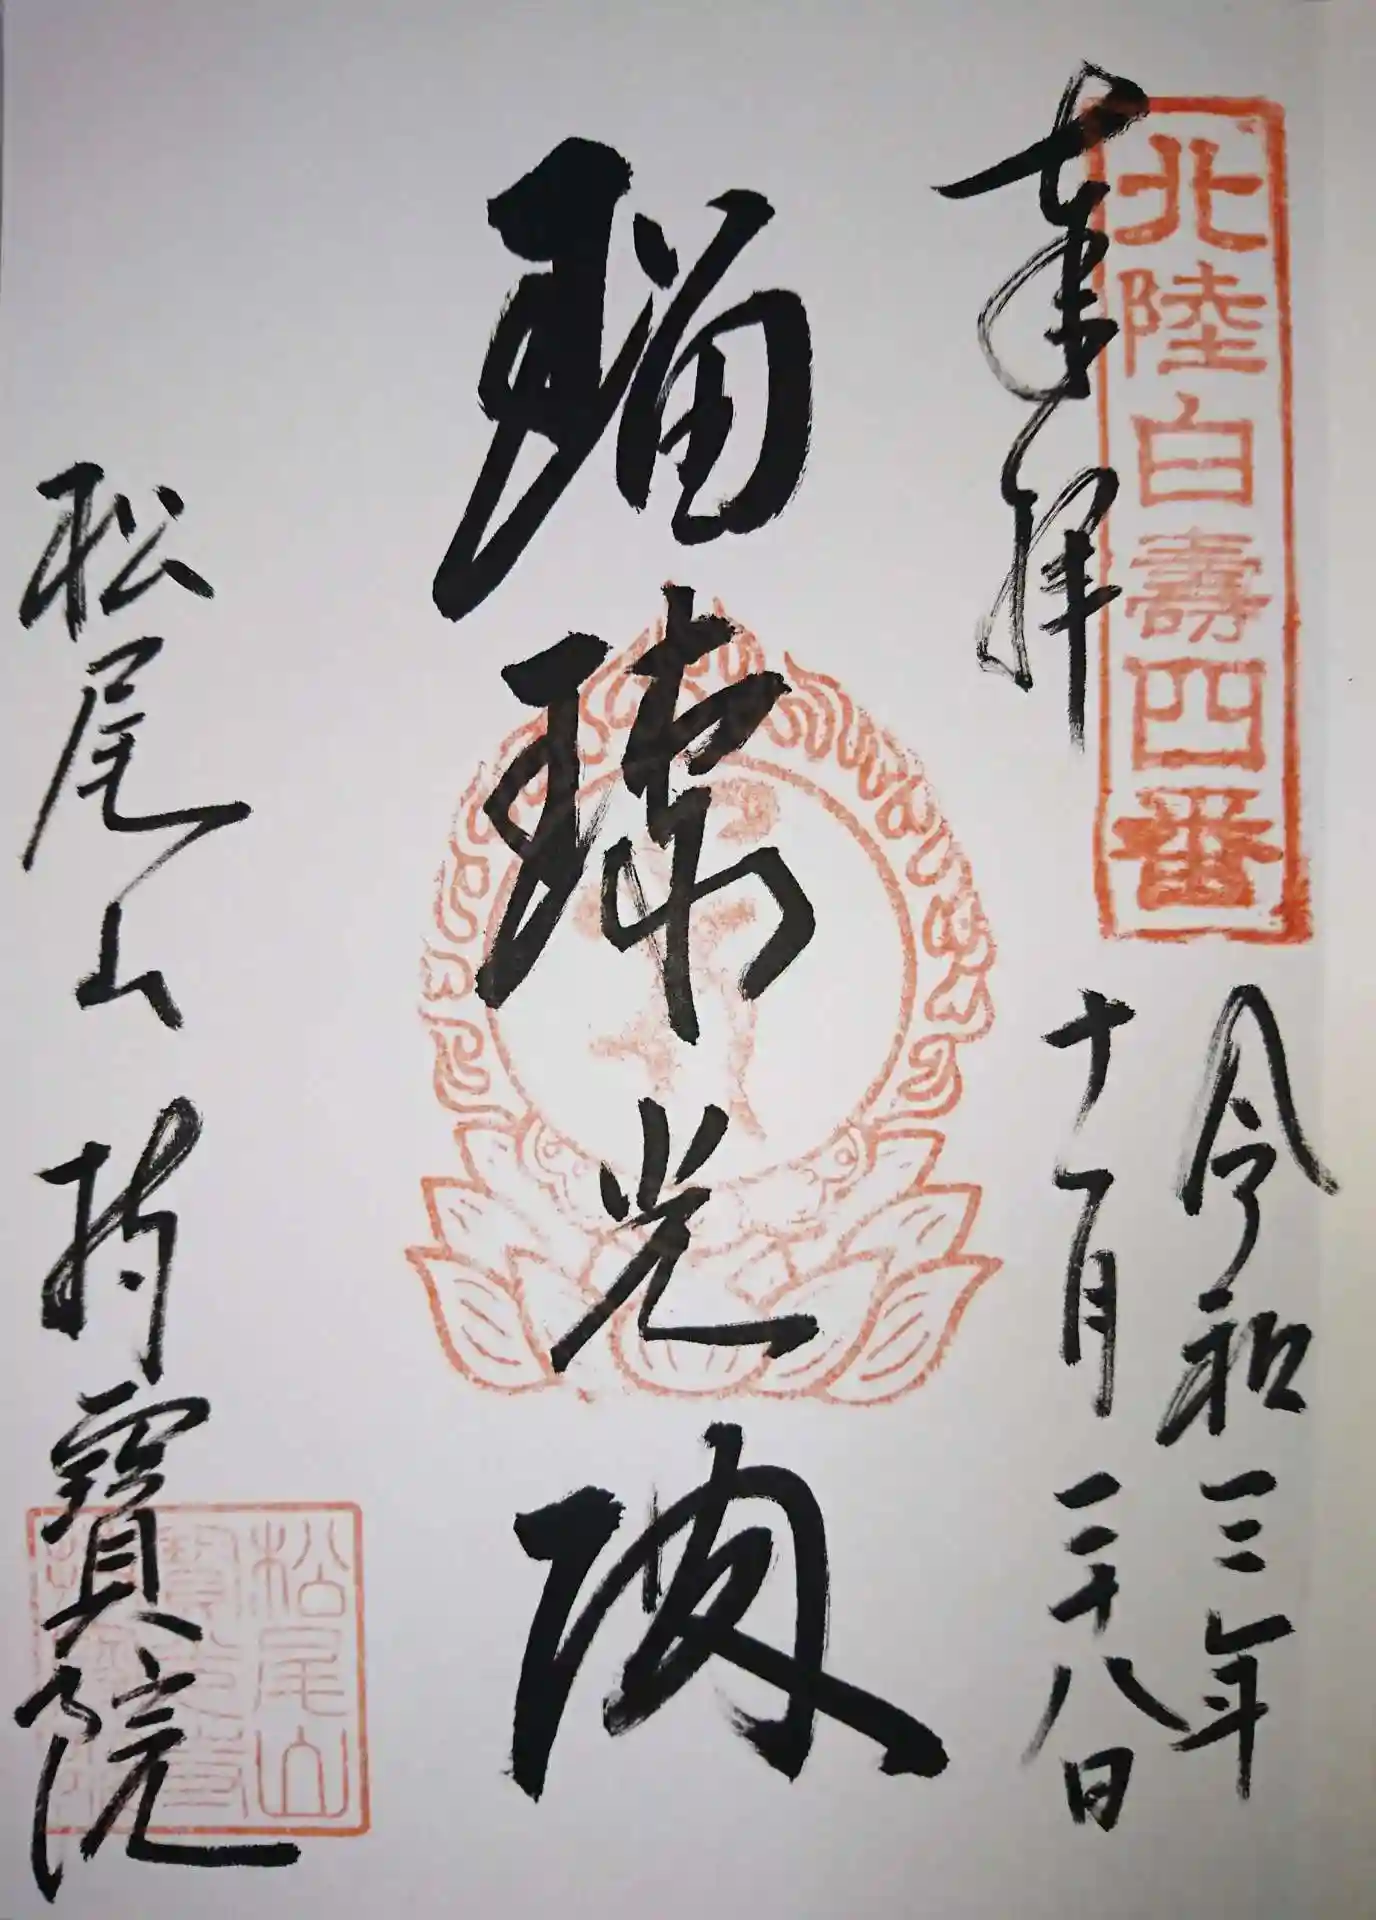 北陸白壽四番
奉拝
令和三年
十一月二十八日
瑠璃光閣
松尾山 持寳院
松尾山